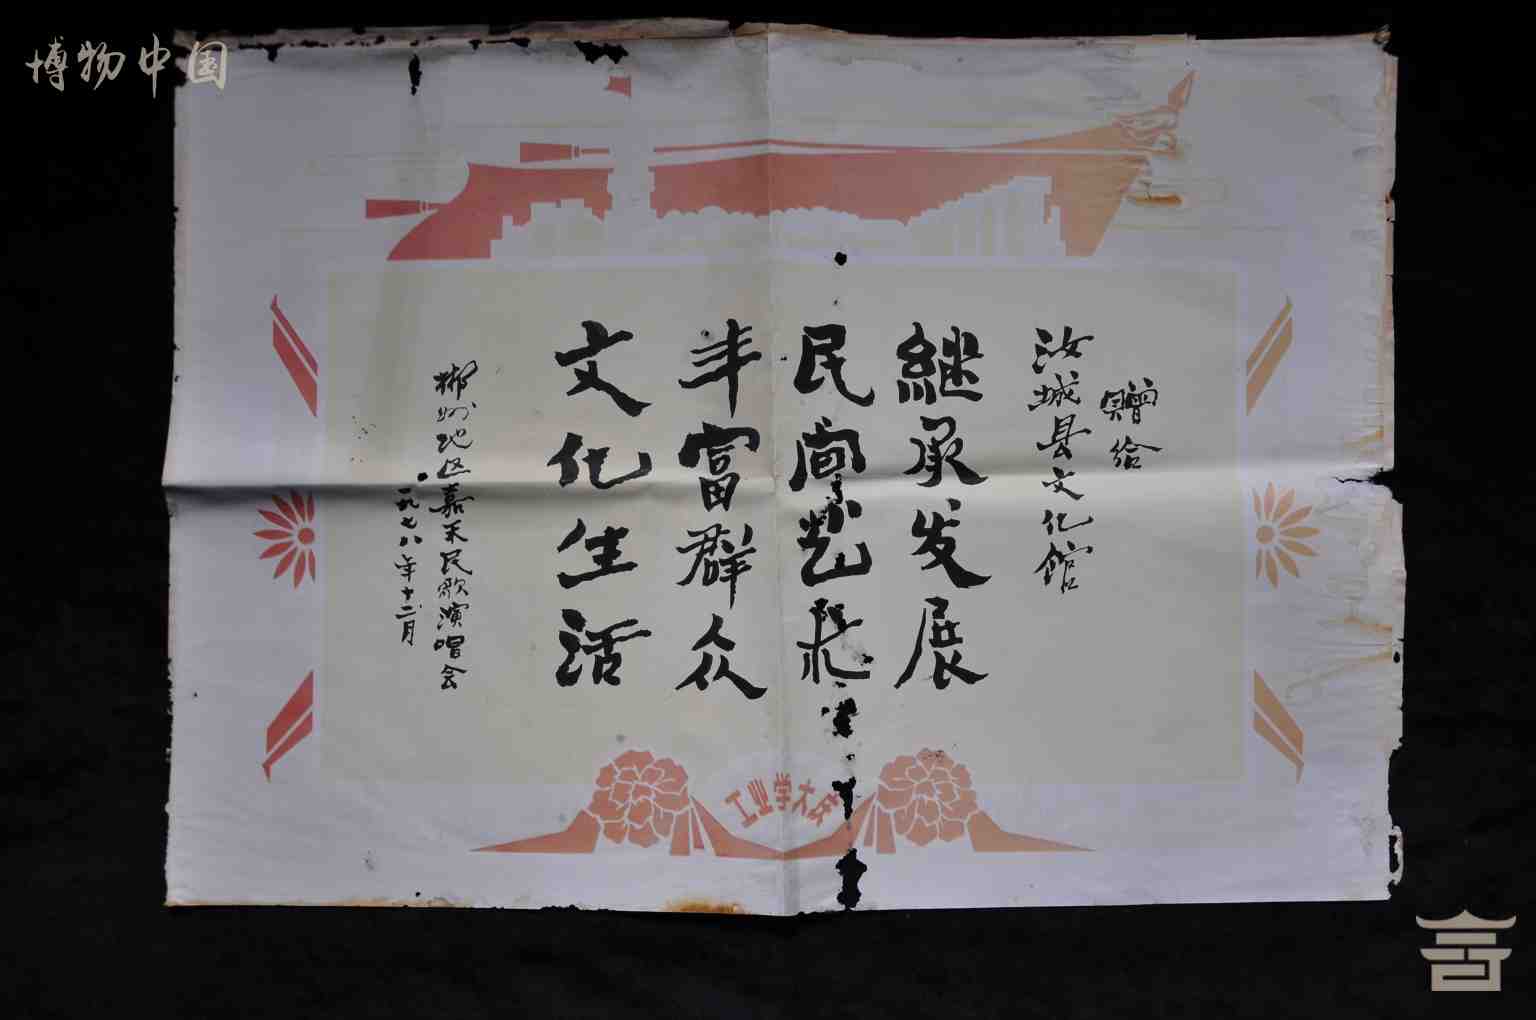 博物中国
赠给
汝城县文化馆
继承发展
民间艺术
丰富群众
文化生活
郴州地区嘉禾民歌演唱会
一九七八年十二月
工业学大庆